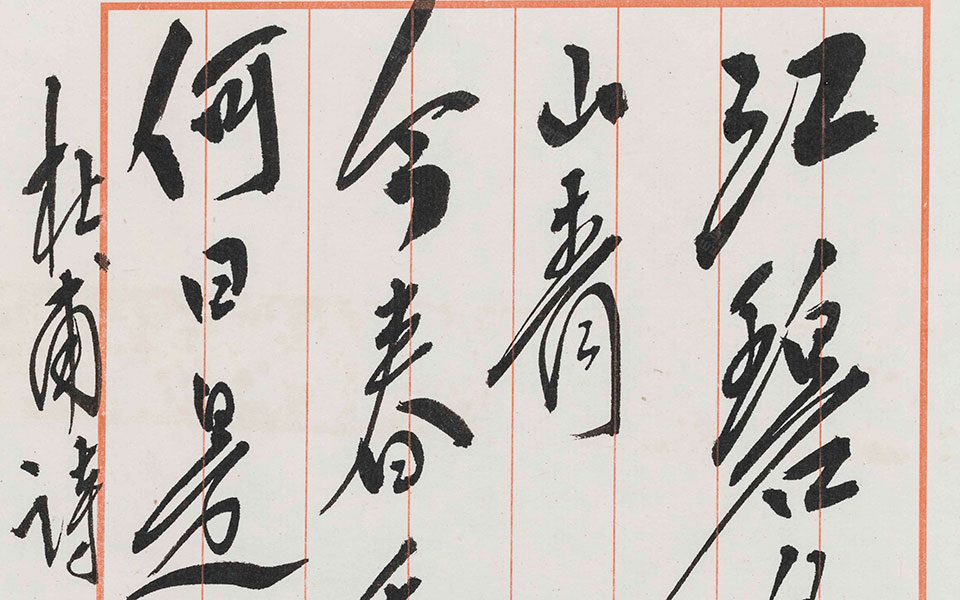 江碧
山青
今春
何日是
杜甫诗